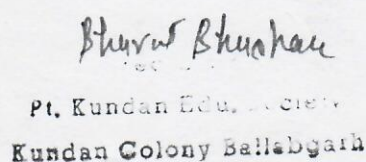 Bharat Bhushan
Pt. Kundan Edu. Society
Kundan Colony Ballabgarh